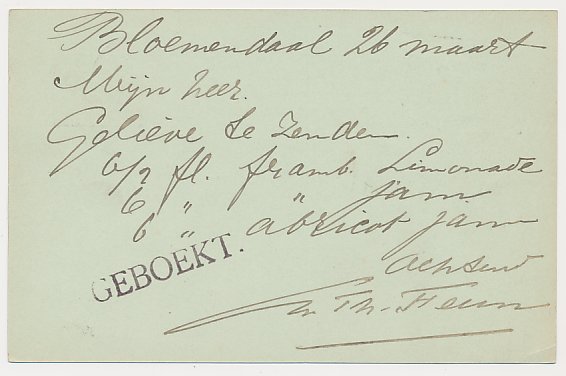 Bloemendaal 26 maart
Mijn heer.
Gelieve te zenden.
6/2 fl. framb. Limonade
6 " " jam
6 " abricot jam
GEBOEKT.
Achtend
Th.